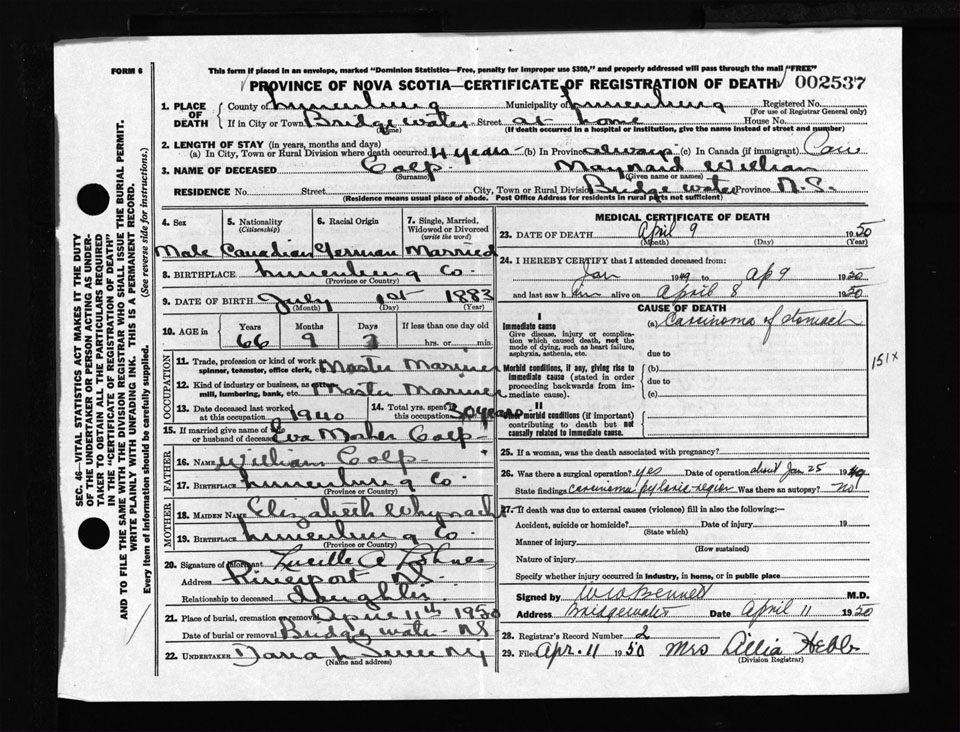 FORM 6
This form if placed in an envelope, marked "Dominion Statistics—Free, penalty for improper use $300," and properly addressed will pass through the mail "FREE"
PROVINCE OF NOVA SCOTIA—CERTIFICATE OF REGISTRATION OF DEATH 002537
1. PLACE OF DEATH { County of Lunenburg Municipality of Lunenburg Registered No.
(For use of Registrar General only)
If in City or Town Bridgewater Street at home House No.
(Name) (If death occurred in a hospital or institution, give the name instead of street and number)
2. LENGTH OF STAY (in years, months and days)
(a) In City, Town or Rural Division where death occurred 4 years (b) In Province always (c) In Canada (if immigrant)
3. NAME OF DECEASED Colp Maynard William
(Surname) (Given name or names)
RESIDENCE No. Street City, Town or Rural Division Bridgewater Province N.S.
(Residence means usual place of abode. Post Office Address for residents in rural parts not sufficient)
4. Sex 5. Nationality 6. Racial Origin 7. Single, Married, Widowed or Divorced
(Citizenship) (write the word)
Male Canadian German Married
8. BIRTHPLACE Lunenburg Co.
(Province or Country)
9. DATE OF BIRTH July 1st 1883
(Month) (Day) (Year)
10. AGE in { Years Months Days If less than one day old
66 9 hrs. or min.
OCCUPATION
11. Trade, profession or kind of work as spinner, teamster, office clerk, etc. Master Mariner
12. Kind of industry or business, as mill, lumbering, bank, etc. Master Mariner
13. Date deceased last worked at this occupation 1940 14. Total yrs. spent in this occupation 30 years
15. If married give name of wife or husband of deceased Eva Mosher Colp
FATHER
16. NAME William Colp
17. BIRTHPLACE Lunenburg Co.
(Province or Country)
MOTHER
18. MAIDEN NAME Elizabeth Whynacht
19. BIRTHPLACE Lunenburg Co.
(Province or Country)
20. Signature of informant Lucille A Lohnes
Address Riverport NS
Relationship to deceased daughter
21. Place of burial, cremation or removal April 11th 1950
Date of burial or removal Bridgewater NS
22. UNDERTAKER
(Name and address)
MEDICAL CERTIFICATE OF DEATH
23. DATE OF DEATH April 9 1950
(Month) (Day) (Year)
24. I HEREBY CERTIFY that I attended deceased from:
Jan 1949 to Ap 9 1950
and last saw him alive on April 8 1950
CAUSE OF DEATH
I
Immediate cause
Give disease, injury or complication which caused death, not the mode of dying, such as heart failure, asphyxia, asthenia, etc.
(a) Carcinoma of stomach
due to
Morbid conditions, if any, giving rise to immediate cause (stated in order proceeding backwards from immediate cause).
(b)
due to
(c)
151x
II
Other morbid conditions (if important) contributing to death but not causally related to immediate cause.
25. If a woman, was the death associated with pregnancy?
26. Was there a surgical operation? yes Date of operation about Jan 25 1949
State findings carcinoma pyloric region Was there an autopsy? no
27. If death was due to external causes (violence) fill in also the following:—
Accident, suicide or homicide? Date of injury 19
(State which)
Manner of injury
(How sustained)
Nature of injury
Specify whether injury occurred in industry, in home, or in public place
Signed by W A Bennett M.D.
Address Bridgewater Date April 11 1950
28. Registrar's Record Number 2
29. Filed Apr. 11 1950 Mrs Lillia Hebb
(Division Registrar)
SEC. 46—VITAL STATISTICS ACT MAKES IT THE DUTY
OF THE UNDERTAKER OR PERSON ACTING AS UNDERTAKER TO OBTAIN ALL THE PARTICULARS REQUIRED
IN THE "CERTIFICATE OF REGISTRATION OF DEATH"
AND TO FILE THE SAME WITH THE DIVISION REGISTRAR WHO SHALL ISSUE THE BURIAL PERMIT.
WRITE PLAINLY WITH UNFADING INK. THIS IS A PERMANENT RECORD.
Every item of information should be carefully supplied. (See reverse side for instructions.)